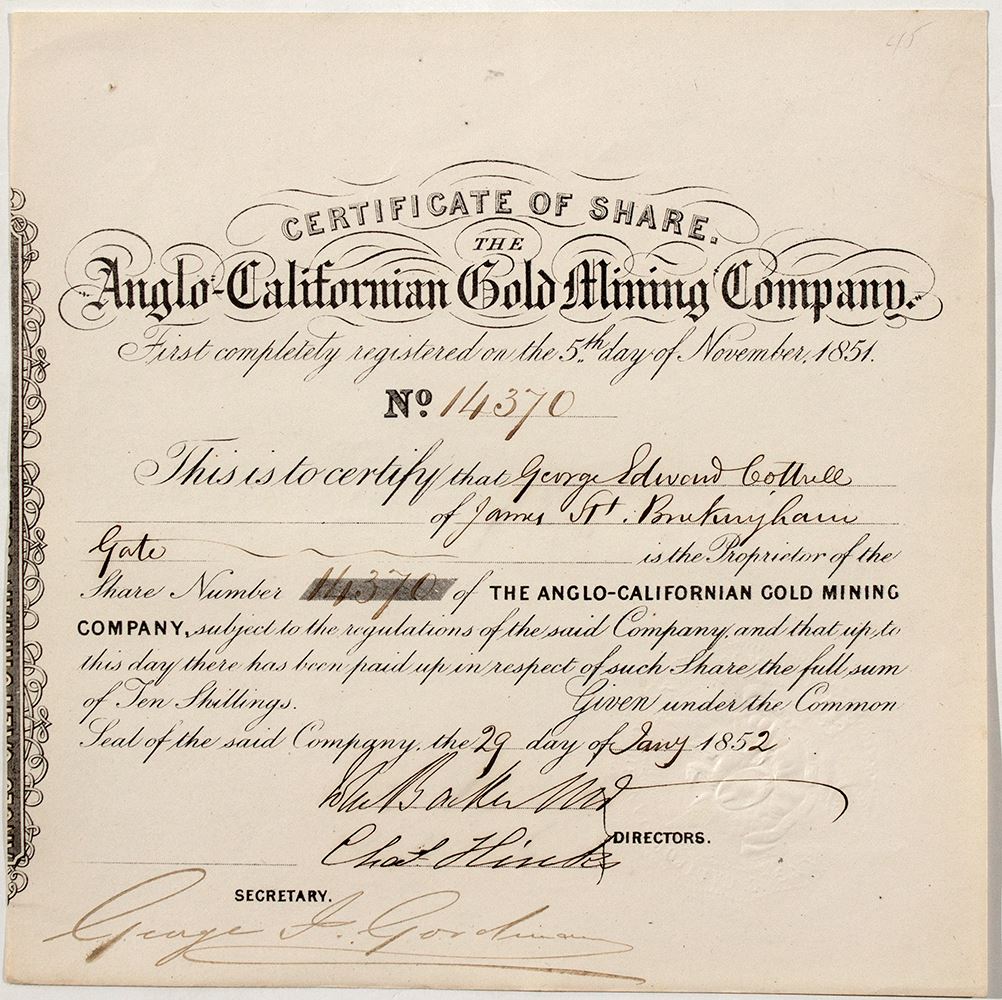 45
CERTIFICATE OF SHARE.
THE
"Anglo-Californian Gold Mining Company."
First completely registered on the 5th day of November, 1851.
No 14370
This is to certify that George Edward Cottrell
of James St. Buckingham
Gate is the Proprietor of the
Share Number 14370 of THE ANGLO-CALIFORNIAN GOLD MINING
COMPANY, subject to the regulations of the said Company, and that up to
this day there has been paid up in respect of such Share the full sum
of Ten Shillings. Given under the Common
Seal of the said Company, the 29 day of Jany 1852
Chas Hinks
DIRECTORS.
SECRETARY.
George